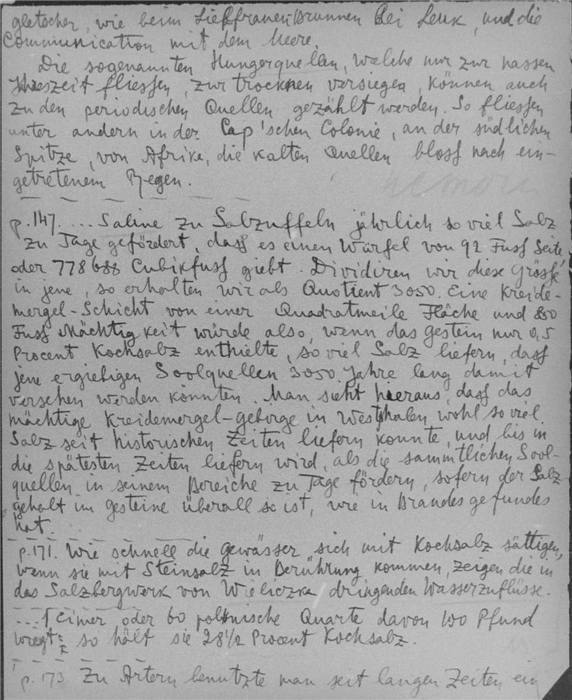 gletscher, wie beim Liebfrauen Brunnen bei Leuk, und die
Communication mit dem Meere.
Die sogenannten Hungerquellen, welche nur zur nassen
Jahreszeit fliessen, zur trocknen versiegen, können auch
zu den periodischen Quellen gezählt werden. So fliessen
unter andern in der Cap'schen Colonie, an der südlichen
Spitze, von Afrika, die kalten Quellen bloss nach ein-
getretenem Regen.
p.147. ... Saline zu Salzuffeln jährlich so viel Salz
zu Tage gefördert, dass es einen Würfel von 92 Fuss Seite,
oder 778688 Cubikfuss giebt. Dividiren wir diese Grösse
in jene, so erhalten wir als Quotient 3050. Eine Kreide-
mergel-Schicht von einer Quadratmeile Fläche und 850
Fuss Mächtigkeit würde also, wenn das Gestein nur 0,5
Procent Kochsalz enthielte, so viel Salz liefern, dass
jene ergiebigen Soolquellen 3050 Jahre lang damit
versehen werden könnten. Man sieht hieraus, dass das
mächtige Kreidemergel-Gebirge in Westphalen wohl so viel
Salz seit historischen Zeiten liefern konnte, und bis in
die spätesten Zeiten liefern wird, als die sämmtlichen Sool-
quellen in seinem Bereiche zu Tage fördern, sofern der Salz-
gehalt im Gesteine überall so ist, wie in Brandes gefundes
hat.
p.171. Wie schnell die Gewässer sich mit Kochsalz sättigen,
wenn sie mit Steinsalz in Berührung kommen, zeigen die in
das Salzbergwerk von Wieliczka dringenden Wasserzuflüsse.
... 1 Eimer oder 60 polnische Quarte davon 100 Pfund
wiegt: so hält sie 28 1/2 Procent Kochsalz.
p.173 Zu Artern benutzte man seit langen Zeiten, ein